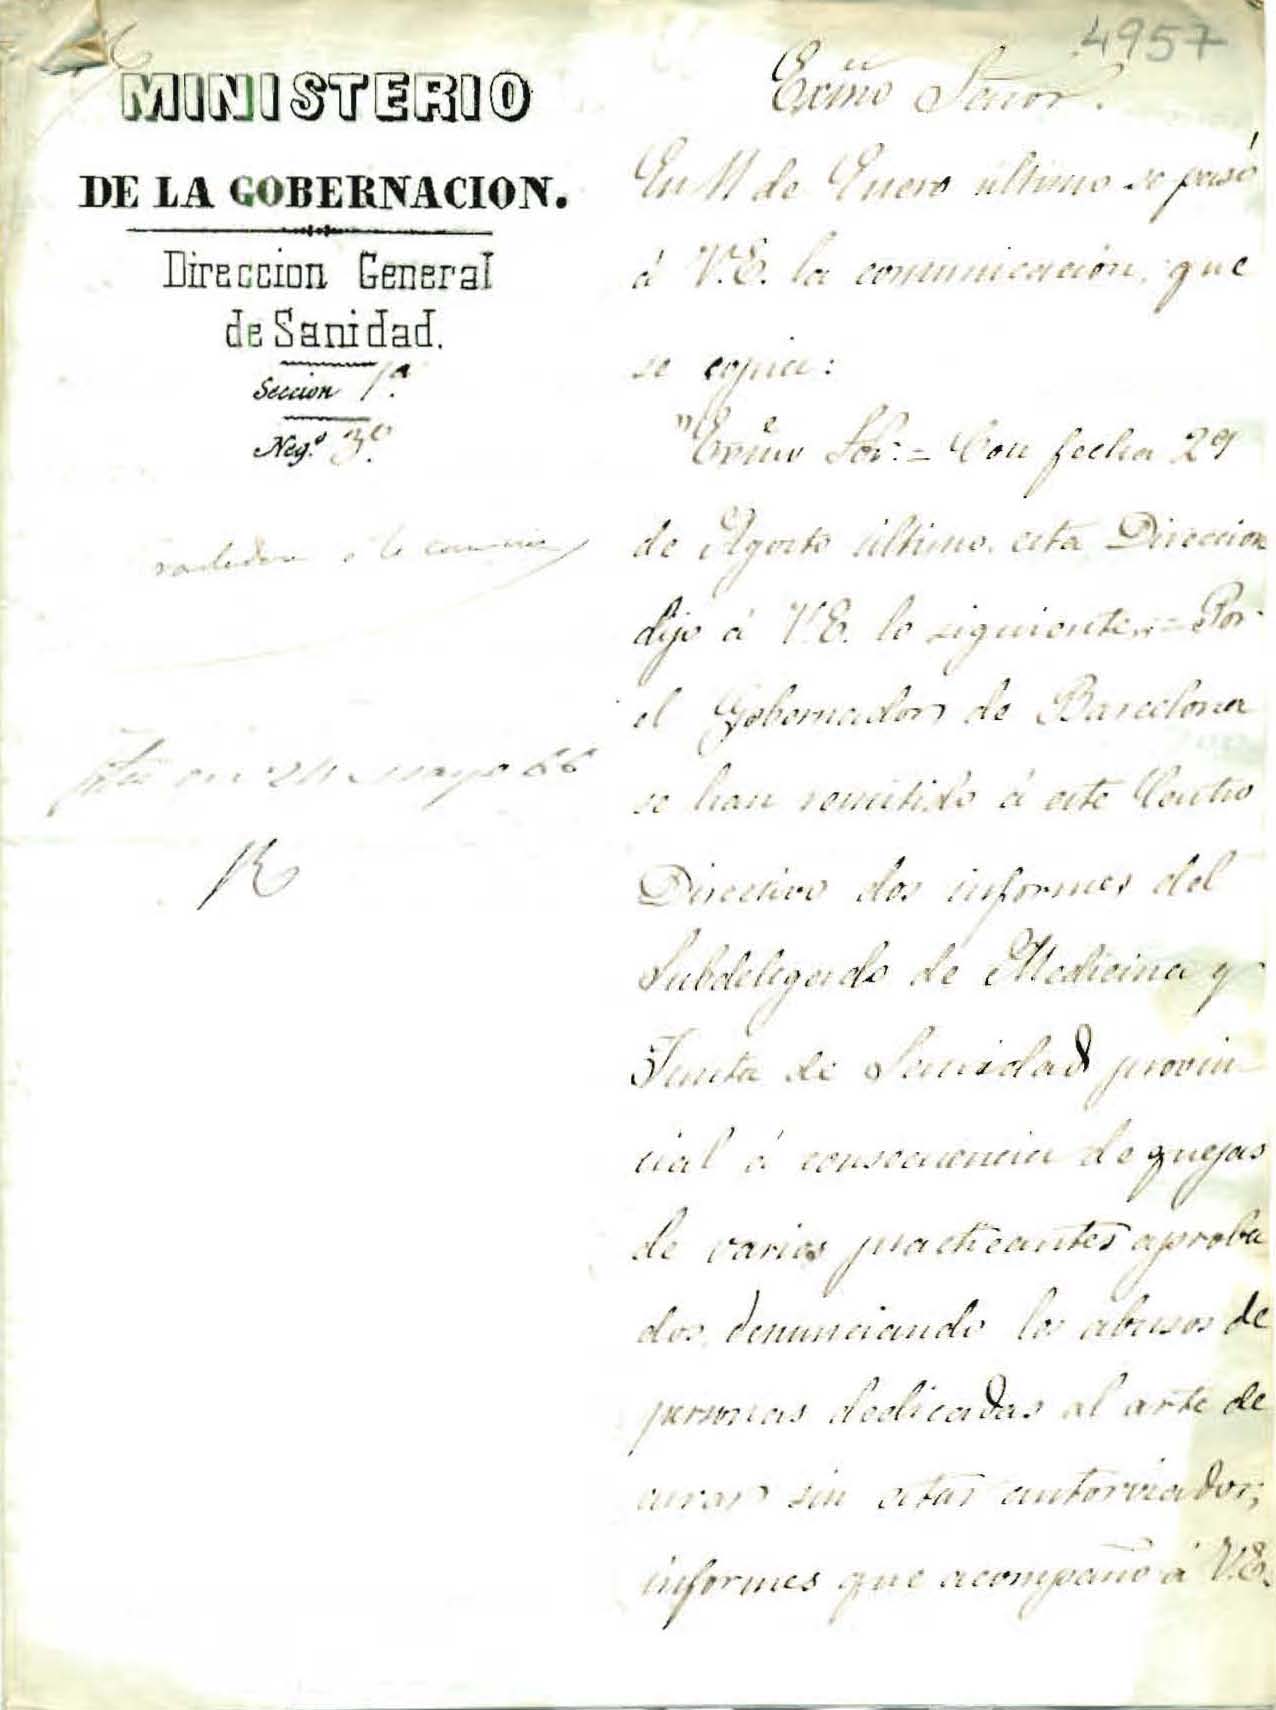 4957
MINISTERIO
DE LA GOBERNACION.
Direccion General
de Sanidad.
Seccion 1ª.
Neg.º 3º.
en 24 Mayo 66
R
Excmo Señor.
En 11 de Enero último se pasó
á V.E. la comunicación, que
se copia:
"Excmo Sor.= Con fecha 29
de Agosto último esta Direccion
dijo á V.E. lo siguiente.=Por
el Gobernador de Barcelona
se han remitido á este Centro
Directivo dos informes del
Subdelegado de Medicina y
Junta de Sanidad provin
cial á consecuencia de quejas
de varios practicantes aproba
dos, denunciando los abusos de
personas dedicadas al arte de
curar sin estar autorizados;
informes que acompaño á V.E.